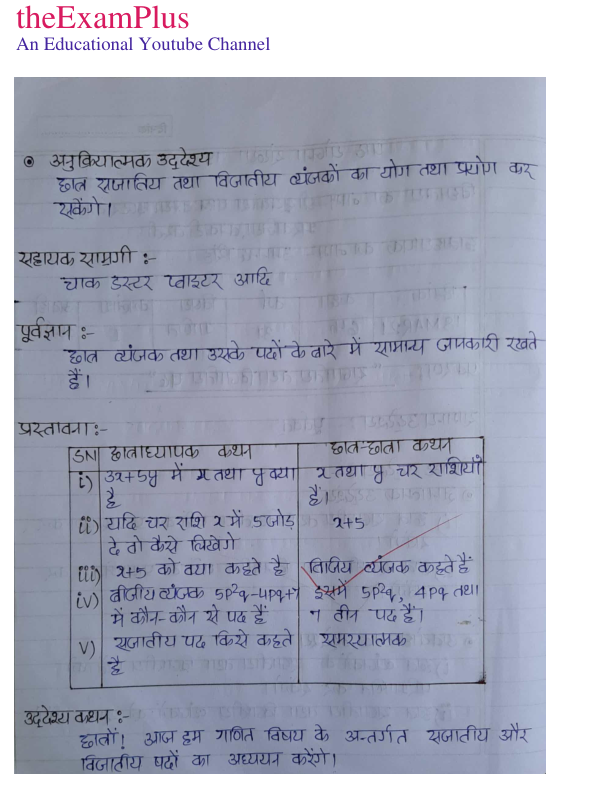 theExamPlus
An Educational Youtube Channel
अनुक्रियात्मक उद्देश्य
छात्र सजातिय तथा विजातीय व्यंजकों का योग तथा प्रयोग कर
सकेंगे।
सहायक सामग्री :-
चाक डस्टर प्वाइंटर आदि
पूर्वज्ञान :-
छात्र व्यंजक तथा उसके पदों के बारे में सामान्य जानकारी रखते
हैं।
प्रस्तावना :-
SN छात्राध्यापक कथन छात्र-छात्रा कथन
i) 3x+5y में x तथा y क्या x तथा y चर राशियाँ
है हैं।
ii) यदि चर राशि x में 5 जोड़ x+5
दे तो कैसे लिखेगे
iii) x+5 को क्या कहते है विजिय व्यंजक कहते हैं
iv) बीजीय व्यंजक 5p²q-4pq+7 इसमें 5p²q, 4pq तथा
में कौन-कौन से पद हैं 7 तीन पद हैं।
v) सजातीय पद किसे कहते समस्यात्मक
है
उद्देश्य कथन :-
छात्रों! आज हम गणित विषय के अन्तर्गत सजातीय और
विजातीय पदों का अध्ययन करेंगे।